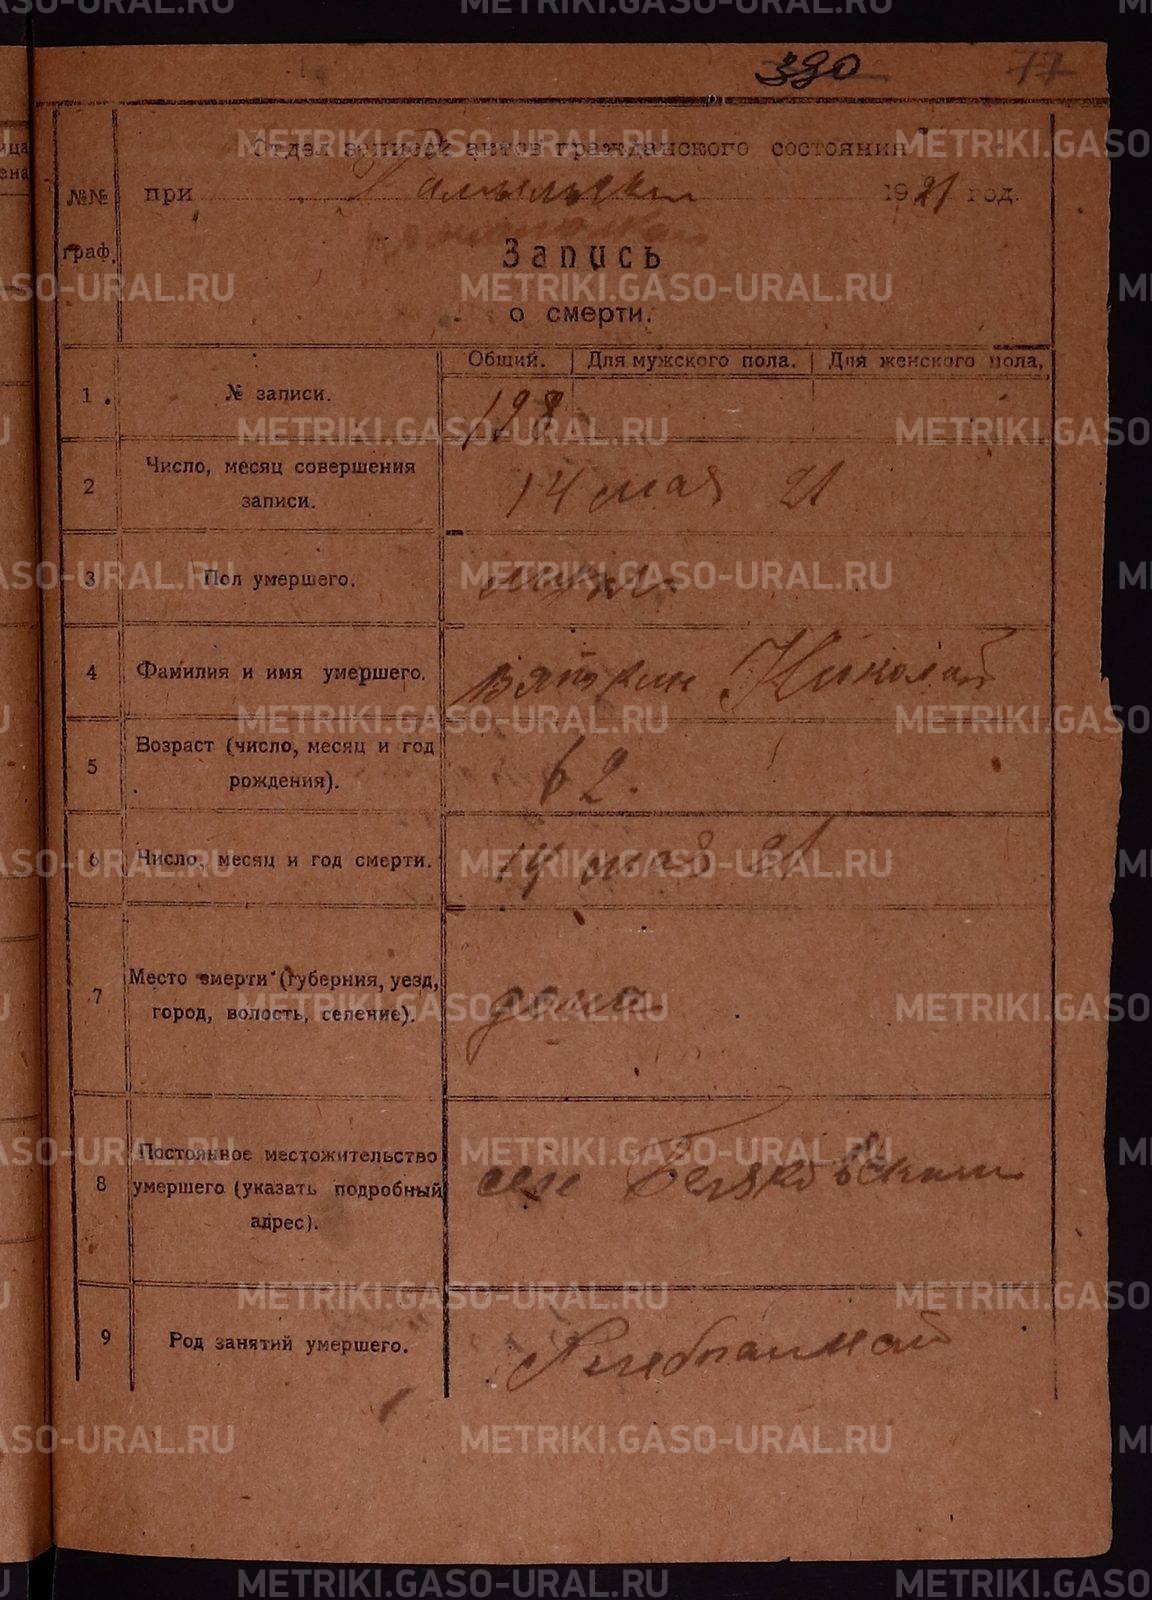 390 77
Отдел записей актов гражданского состояния
№№ граф.
при 1921 год.
Запись
о смерти.
Общий. Для мужского пола. Для женского пола,
1 № записи. 128
2 Число, месяц совершения
записи.
14 мая 21
3 Пол умершего.
4 Фамилия и имя умершего. Вяткин Николай
5 Возраст (число, месяц и год
рождения).
62.
6 Число, месяц и год смерти. 14 мая 21
7 Место смерти (губерния, уезд,
город, волость, селение).
дома
8 Постоянное местожительство
умершего (указать подробный
адрес).
селе Беляковском
9 Род занятий умершего. Хлебопашест
METRIKI.GASO-URAL.RU